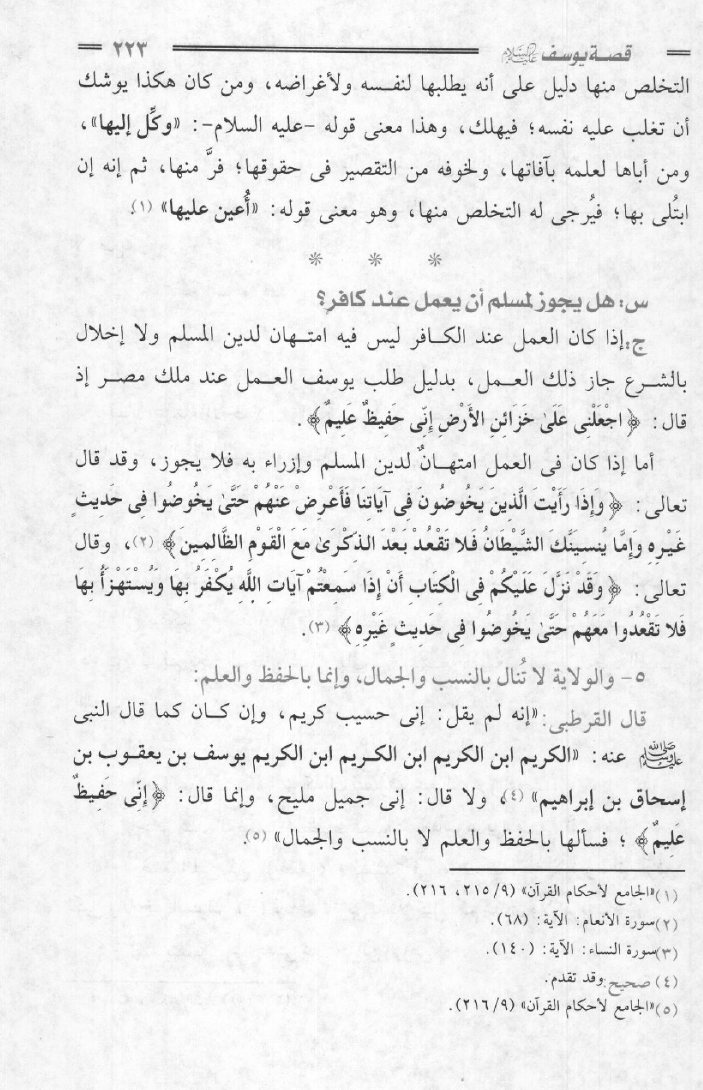 قصة يوسف عليه السلام ٢٢٣
التخلص منها دليل على أنه يطلبها لنفسه ولأغراضه، ومن كان هكذا يوشك
أن تغلب عليه نفسه؛ فيهلك، وهذا معنى قوله -عليه السلام-: «وكِّل إليها»،
ومن أباها لعلمه بآفاتها، ولخوفه من التقصير فى حقوقها؛ فرَّ منها، ثم إنه إن
ابتُلى بها؛ فيُرجى له التخلص منها، وهو معنى قوله: «أُعين عليها» (١).
* * *
س: هل يجوز لمسلم أن يعمل عند كافر؟
ج: إذا كان العمل عند الكافر ليس فيه امتهان لدين المسلم ولا إخلال
بالشرع جاز ذلك العمل، بدليل طلب يوسف العمل عند ملك مصر إذ
قال: ﴿اجْعَلْنِى عَلَىٰ خَزَائِنِ الأَرْضِ إِنِّى حَفِيظٌ عَلِيمٌ﴾.
أما إذا كان فى العمل امتهانٌ لدين المسلم وإزراء به فلا يجوز، وقد قال
تعالى: ﴿وَإِذَا رَأَيْتَ الَّذِينَ يَخُوضُونَ فِى آيَاتِنَا فَأَعْرِضْ عَنْهُمْ حَتَّىٰ يَخُوضُوا فِى حَدِيثٍ
غَيْرِهِ وَإِمَّا يُنسِيَنَّكَ الشَّيْطَانُ فَلا تَقْعُدْ بَعْدَ الذِّكْرَىٰ مَعَ الْقَوْمِ الظَّالِمِينَ﴾ (٢)، وقال
تعالى: ﴿وَقَدْ نَزَّلَ عَلَيْكُمْ فِى الْكِتَابِ أَنْ إِذَا سَمِعْتُمْ آيَاتِ اللَّهِ يُكْفَرُ بِهَا وَيُسْتَهْزَأُ بِهَا
فَلا تَقْعُدُوا مَعَهُمْ حَتَّىٰ يَخُوضُوا فِى حَدِيثٍ غَيْرِهِ﴾ (٣).
٥- والولاية لا تُنال بالنسب والجمال، وإنما بالحفظ والعلم:
قال القرطبى: «إنه لم يقل: إنى حسيب كريم، وإن كان كما قال النبى
ﷺ عنه: «الكريم ابن الكريم ابن الكريم ابن الكريم يوسف بن يعقوب بن
إسحاق بن إبراهيم» (٤)، ولا قال: إنى جميل مليح، وإنما قال: ﴿إِنِّى حَفِيظٌ
عَلِيمٌ﴾؛ فسألها بالحفظ والعلم لا بالنسب والجمال» (٥).
(١) «الجامع لأحكام القرآن» (٢١٥/٩، ٢١٦).
(٢) سورة الأنعام: الآية: (٦٨).
(٣) سورة النساء: الآية: (١٤٠).
(٤) صحيح: وقد تقدم.
(٥) «الجامع لأحكام القرآن» (٢١٦/٩).